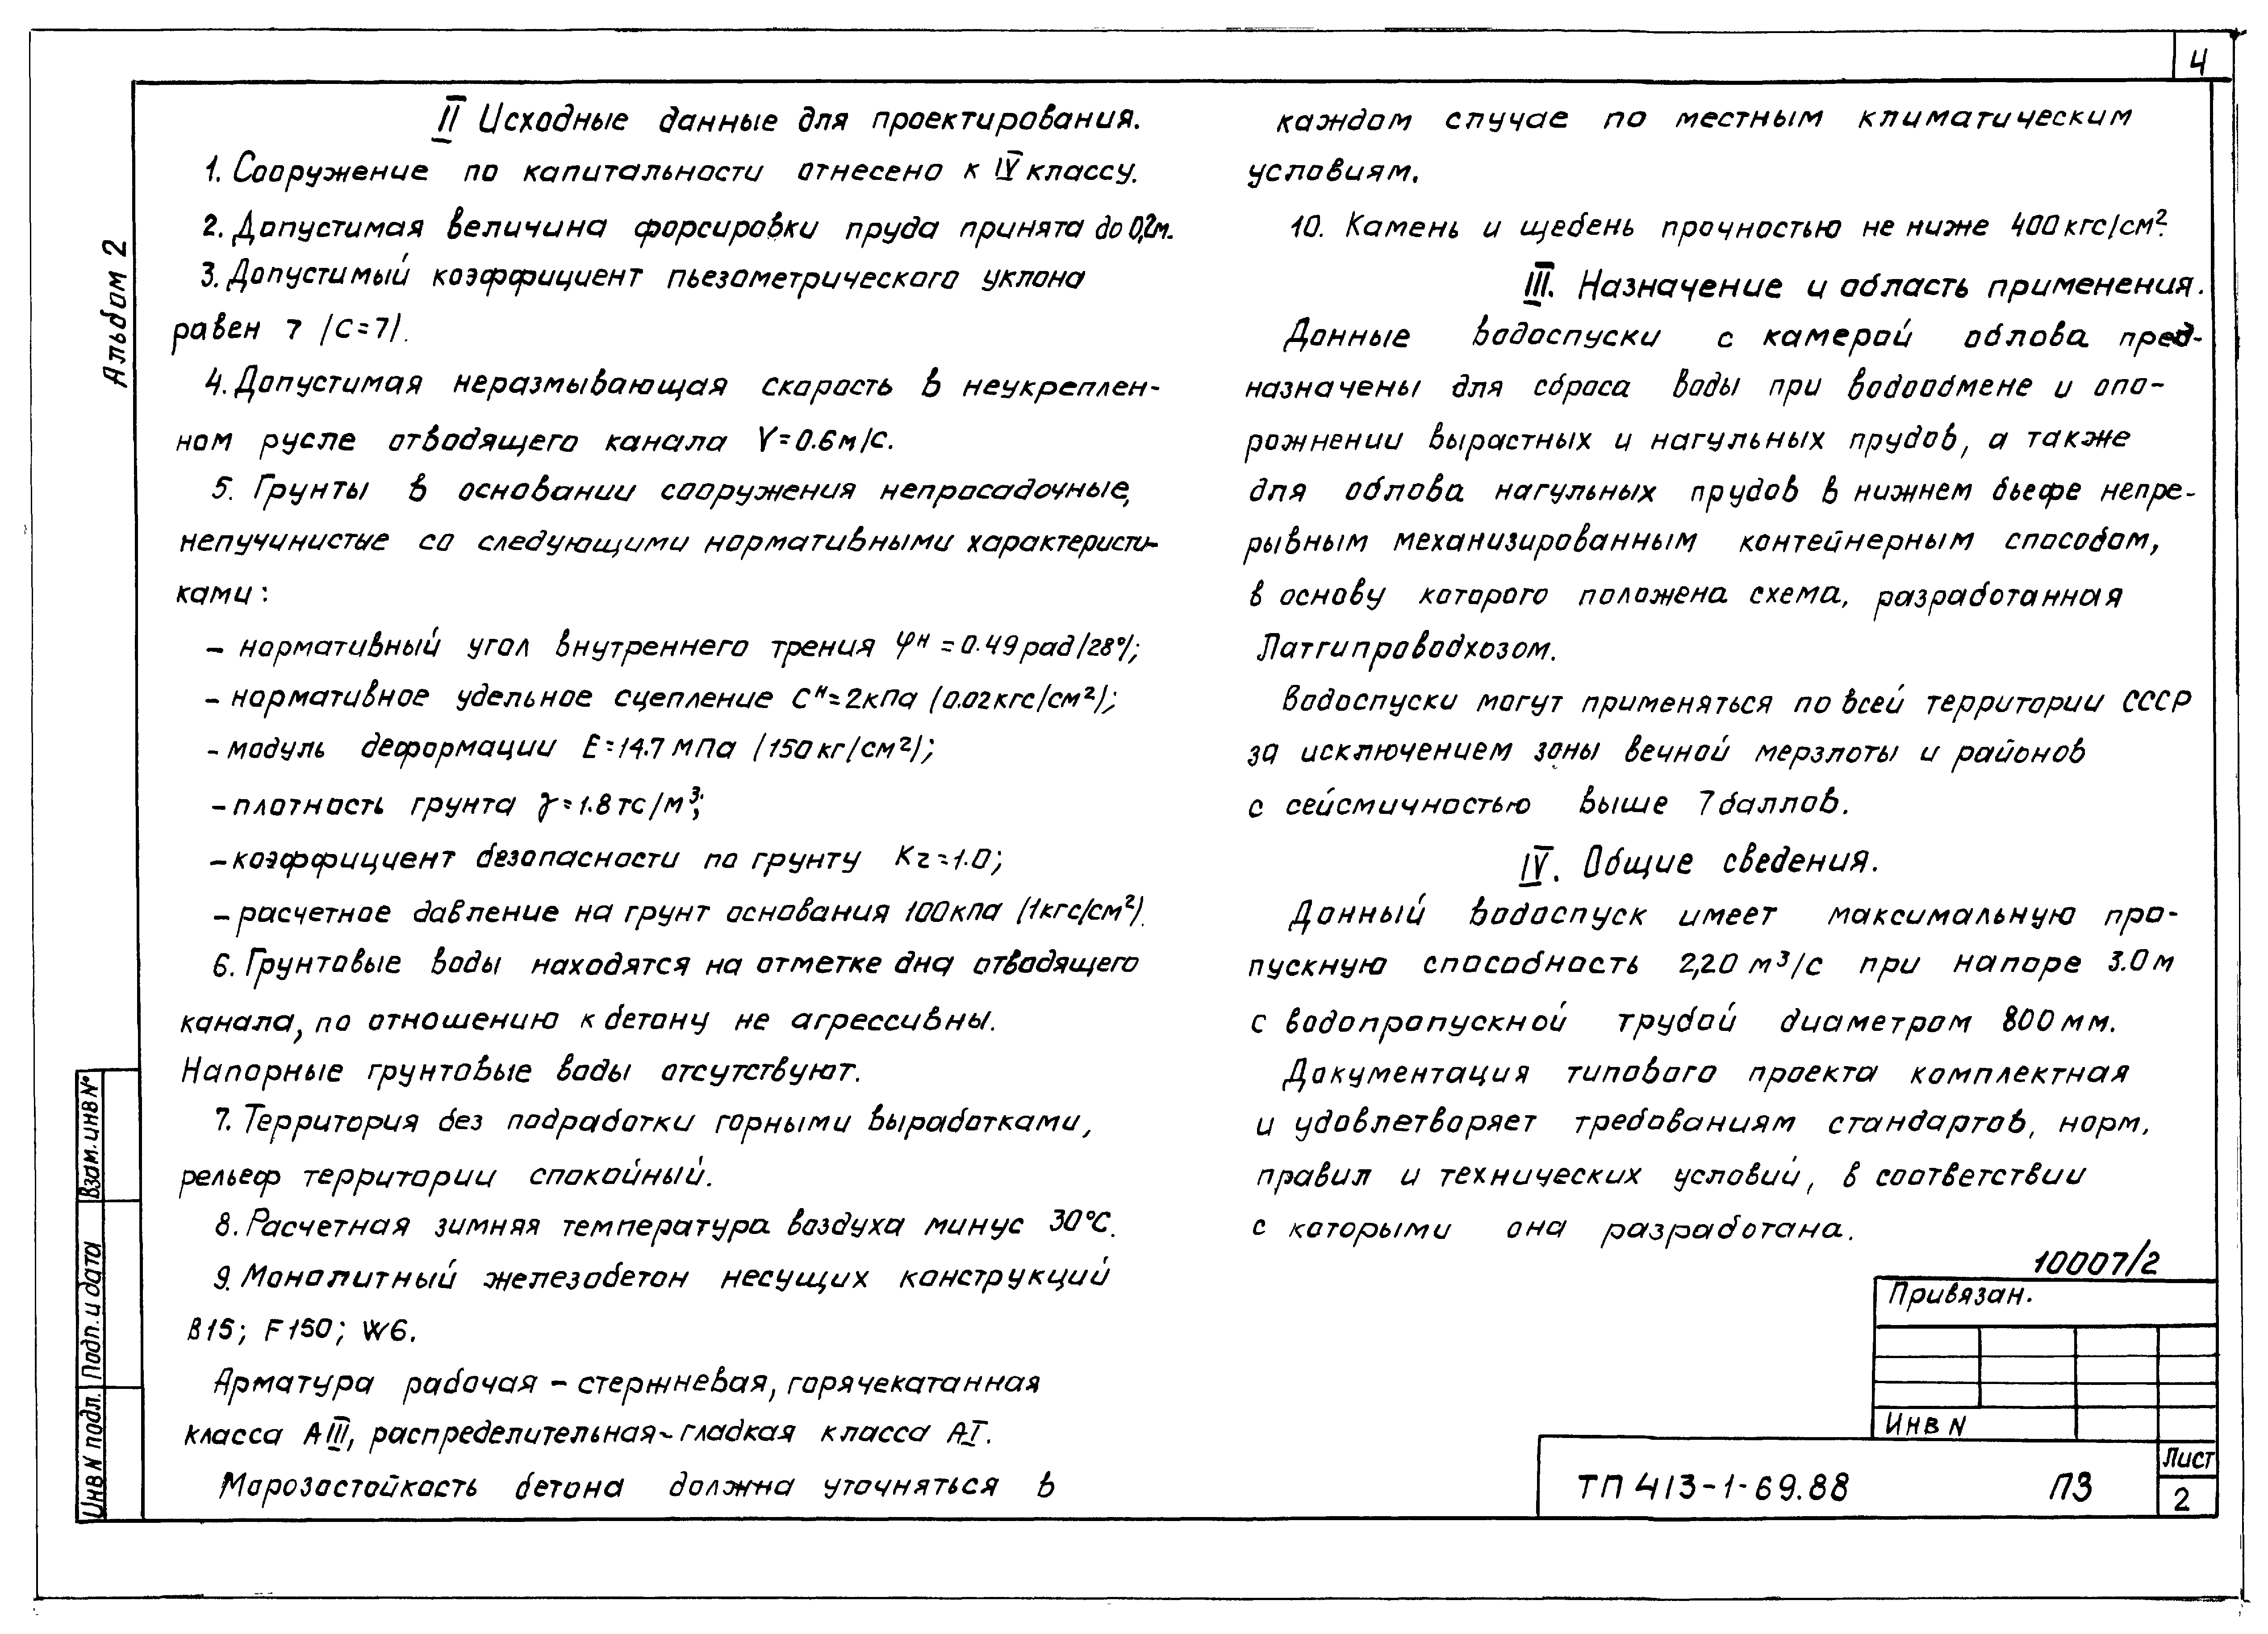 4
Альбом 2
II Исходные данные для проектирования.
1. Сооружение по капитальности отнесено к IV классу.
2. Допустимая величина форсировки пруда принята до 0,2м.
3. Допустимый коэффициент пьезометрического уклона
равен 7 /С=7/.
4. Допустимая неразмывающая скорость в неукреплен-
ном русле отводящего канала V=0.6м/с.
5. Грунты в основании сооружения непросадочные,
непучинистые со следующими нормативными характеристи-
ками:
- нормативный угол внутреннего трения φᴴ=0.49рад/28°/;
- нормативное удельное сцепление Сᴴ=2кПа (0.02кгс/см²);
- модуль деформации Е=14.7 МПа (150кг/см²);
- плотность грунта γ=1.8тс/м³;
- коэффициент безопасности по грунту Кг=1.0;
- расчетное давление на грунт основания 100кПа (1кгс/см²).
6. Грунтовые воды находятся на отметке дна отводящего
канала, по отношению к бетону не агрессивны.
Напорные грунтовые воды отсутствуют.
7. Территория без подработки горными выработками,
рельеф территории спокойный.
8. Расчетная зимняя температура воздуха минус 30°С.
9. Монолитный железобетон несущих конструкций
В15; F150; W6.
Арматура рабочая - стержневая, горячекатанная
класса АIII, распределительная - гладкая класса АI.
Морозостойкость бетона должна уточняться в
каждом случае по местным климатическим
условиям.
10. Камень и щебень прочностью не ниже 400кгс/см².
III. Назначение и область применения.
Данные водоспуски с камерой облова пред-
назначены для сброса воды при водообмене и опо-
рожнении вырастных и нагульных прудов, а также
для облова нагульных прудов в нижнем бьефе непре-
рывным механизированным контейнерным способом,
в основу которого положена схема, разработанная
Латгипроводхозом.
Водоспуски могут применяться по всей территории СССР
за исключением зоны вечной мерзлоты и районов
с сейсмичностью выше 7 баллов.
IV. Общие сведения.
Данный водоспуск имеет максимальную про-
пускную способность 2,20 м³/с при напоре 3.0м
с водопропускной трубой диаметром 800мм.
Документация типового проекта комплектная
и удовлетворяет требованиям стандартов, норм,
правил и технических условий, в соответствии
с которыми она разработана.
10007/2
Привязан.
Инв N
ТП 413-1-69.88
ПЗ
Лист
2
Взам. инв №
Подп. и дата
Инв N подл.